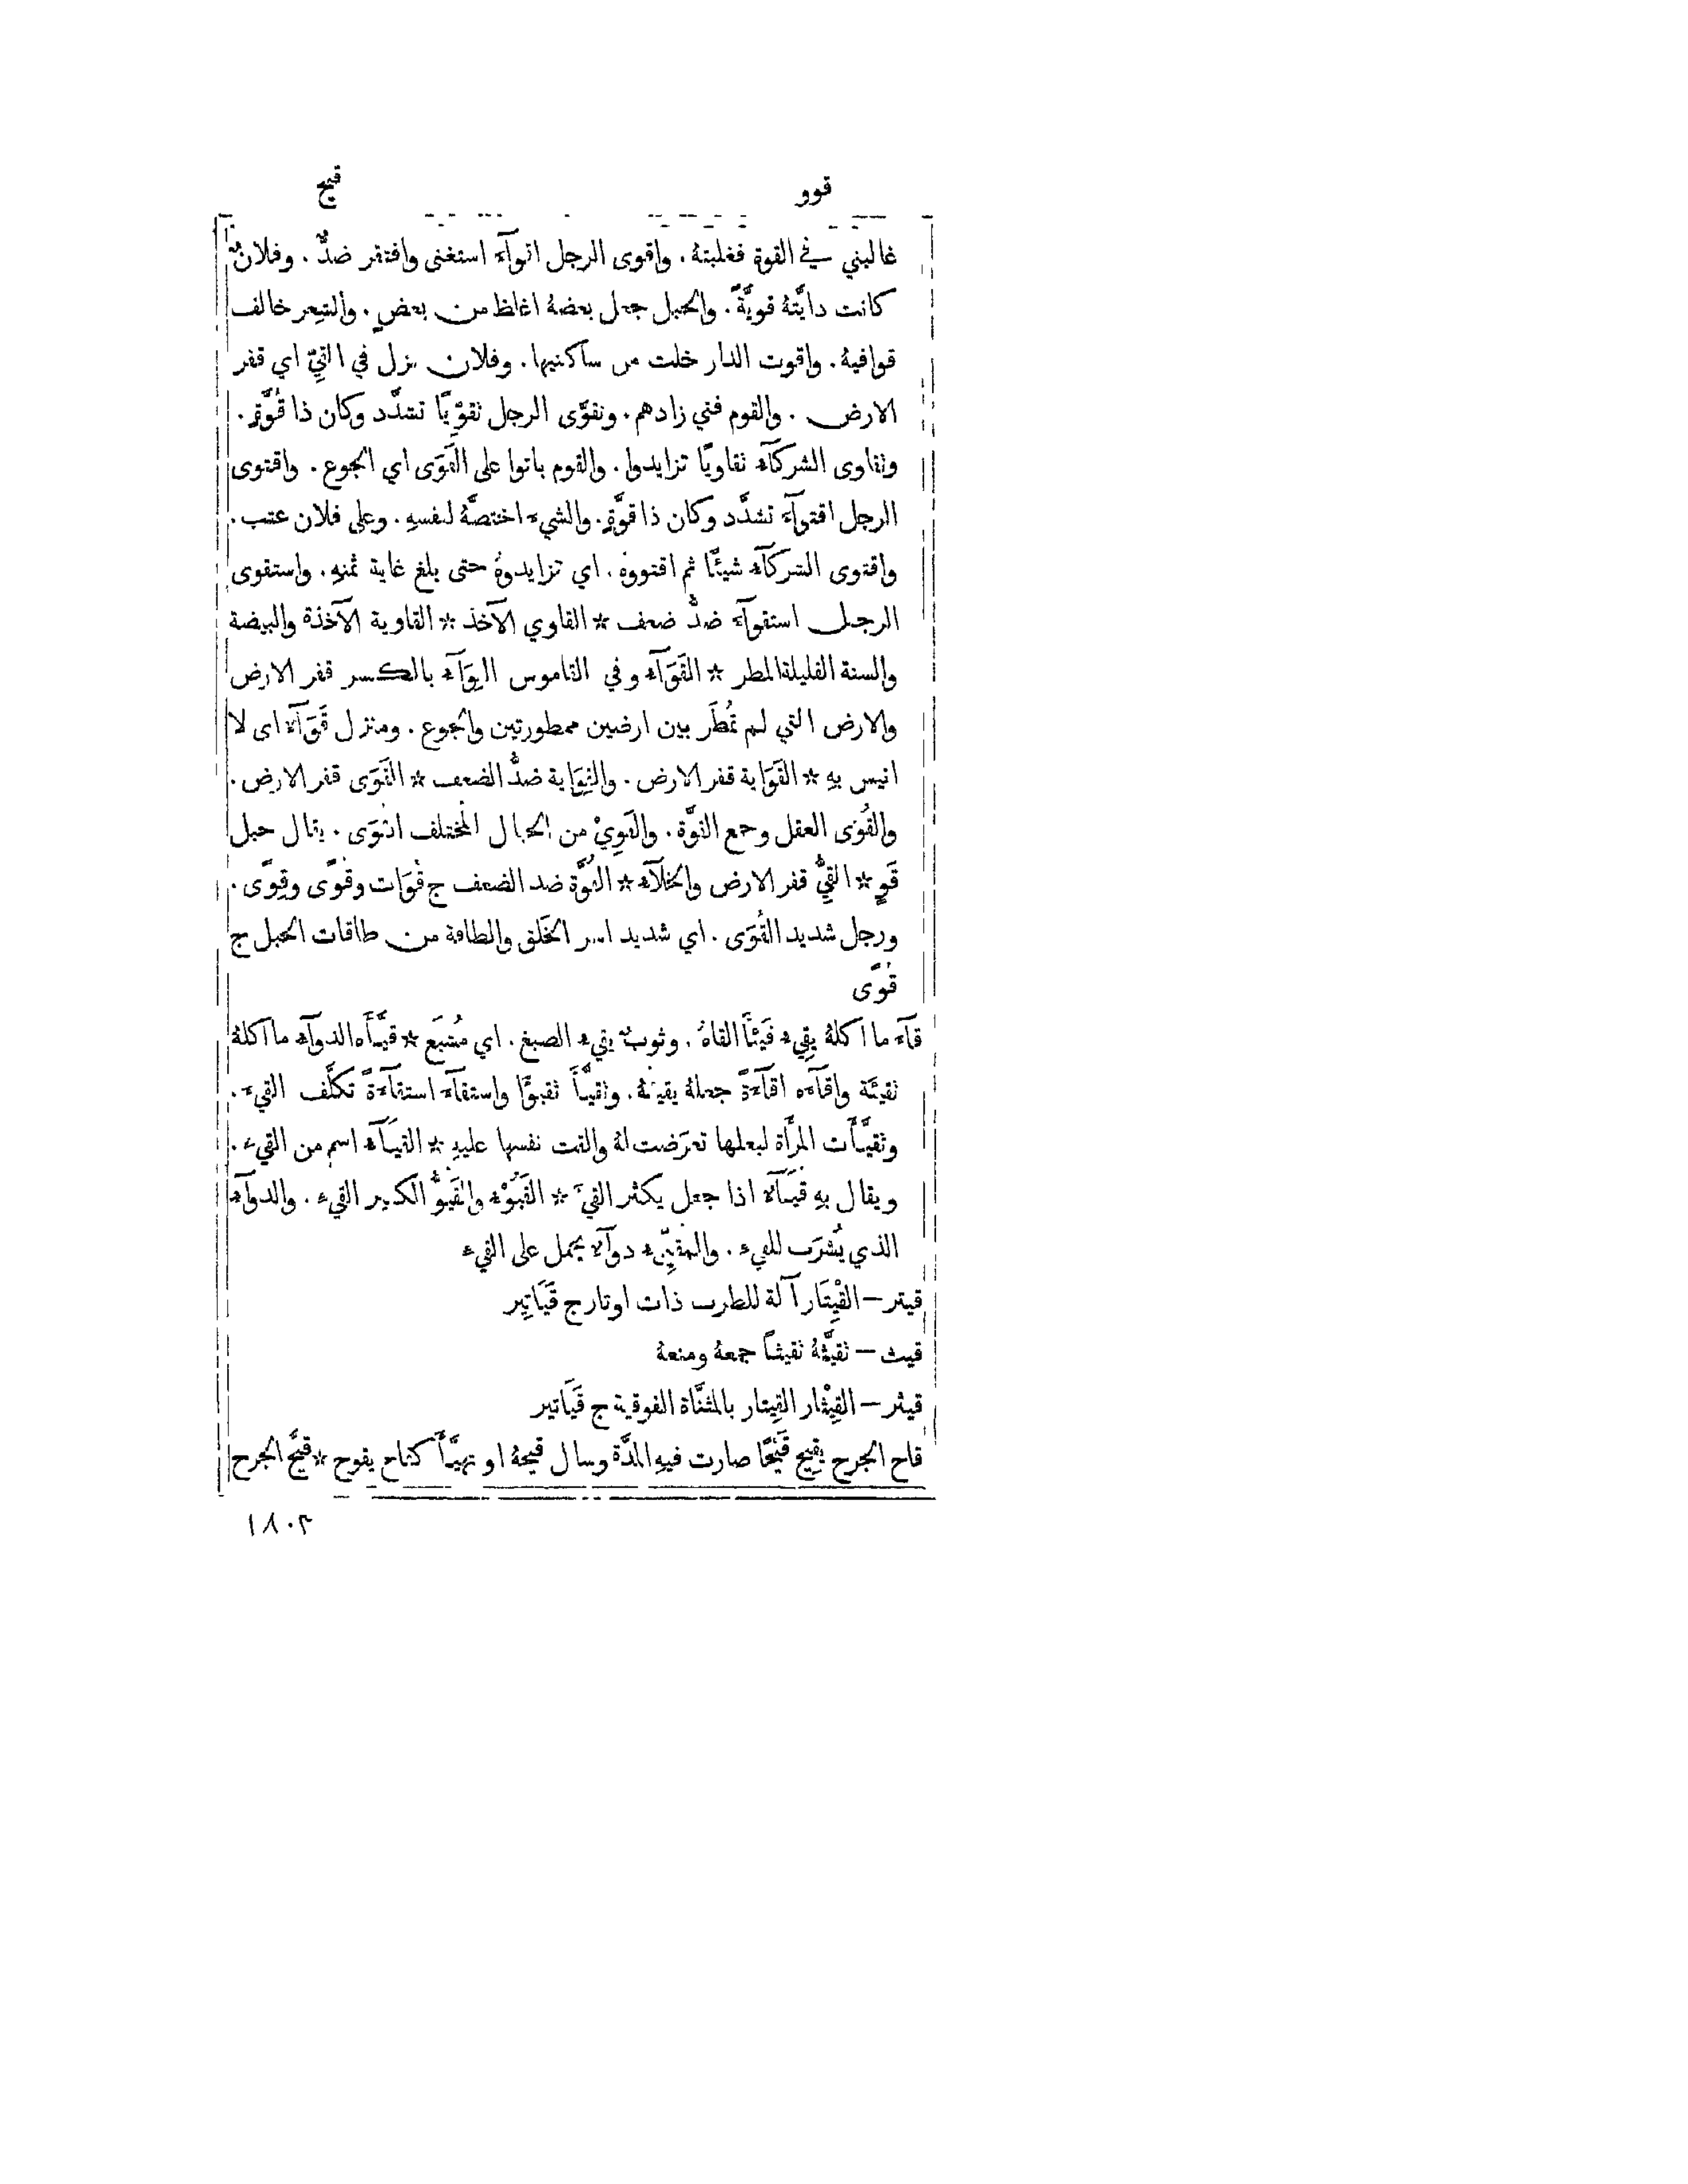 قوو
قيح
غالبني في القوة فغلبتهُ. واقوى الرجل اقوآءً استغنى وافتقر ضدٌّ. وفلانٌ
كانت دابَّتهُ قويَّةً. والحبل جعل بعضهُ اغلظ من بعضٍ. والشعر خالف
قوافيهُ. واقوت الدار خلت من ساكنيها. وفلان نزل في القِيِّ اي قفر
الارض. والقوم فني زادهم. وتقوَّى الرجل تقوِّيًا تشدَّد وكان ذا قُوَّةٍ.
وتقاوى الشركآء تقاويًا تزايدوا. والقوم باتوا على القَوَى اي الجوع. واقتوى
الرجل اقتوآءً تشدَّد وكان ذا قوَّةٍ. والشيءَ اختصَّهُ لنفسهِ. وعلى فلان عتب.
واقتوى الشركآء شيئًا ثم اقتووهُ. اي تزايدوهُ حتى بلغ غاية ثمنهِ. واستقوى
الرجل استقوآءً ضدُّ ضعف * القاوي الآخذ * القاوية الآخذة والبيضة
والسنة القليلة المطر * القَوَآء وفي القاموس القِوَآء بالكسر قفر الارض
والارض التي لم تُمطَر بين ارضين ممطورتين والجوع. ومنزل قَوَآءٌ اى لا
انيس بهِ * القَوَاية قفر الارض. والقِوَاية ضدُّ الضعف * القَوَى قفر الارض.
والقُوَى العقل وجمع القوَّة. والقَوِيْ من الحبال المختلف القُوَى. يقال حبل
قَوٍ * القِيُّ قفر الارض والخلآء * القُوَّة ضد الضعف ج قُوَات وقُوًى وقِوًى.
ورجل شديد القُوَى. اي شديد اسر الخَلق والطاقة من طاقات الحبل ج
قُوًى
قآء ما اكلهُ يقِيءُ قَيئًا القاهُ. وثوبٌ يقيءُ الصبغ. اي مُشبَع * قيَّأَه الدوآء ما اكلهُ
تقيئَة واقآءه اقآءَةً جعلهُ يقيئهُ. وتقيَّأَ تقيؤًا واستقآء استقآءَةً تكلَّف القيء.
وتقيَّأَت المرأَة لبعلها تعرَّضت لهُ والقت نفسها عليهِ * القيَآء اسم من القيء.
ويقال بهِ قيَآءٌ اذا جعل يكثر القيءَ * القَيُوْء والقَيُوُّ الكثير القيء. والدوآء
الذي يُشرَب للقيء. والمقيِّء دوآءٌ يحمل على القيء
قيتر — القِيْتَار آلة للطرب ذات اوتار ج قَيَاتِير
قيث — تقيَّثهُ تقيثًا جمعهُ ومنعهُ
قيثر — القِيْثار القِيتار بالمثنَّاة الفوقية ج قَيَاثير
قاح الجرح يقِيح قَيْحًا صارت فيهِ المدَّة وسال قيحهُ او تهيَّأَ كقاح يقوح * قيَّح الجرح
١٨٠٢